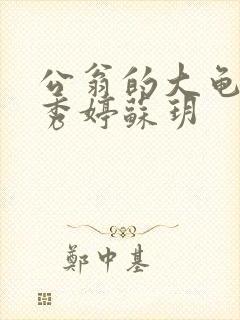 公翁的大龟
秀婷蘇玥
鄭中基